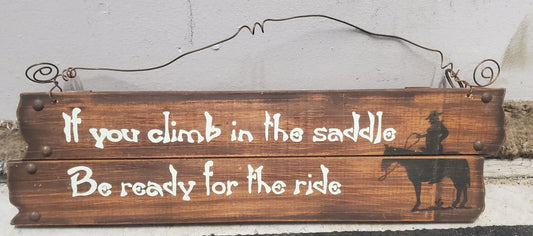 If you climb in the saddle
Be ready for the ride